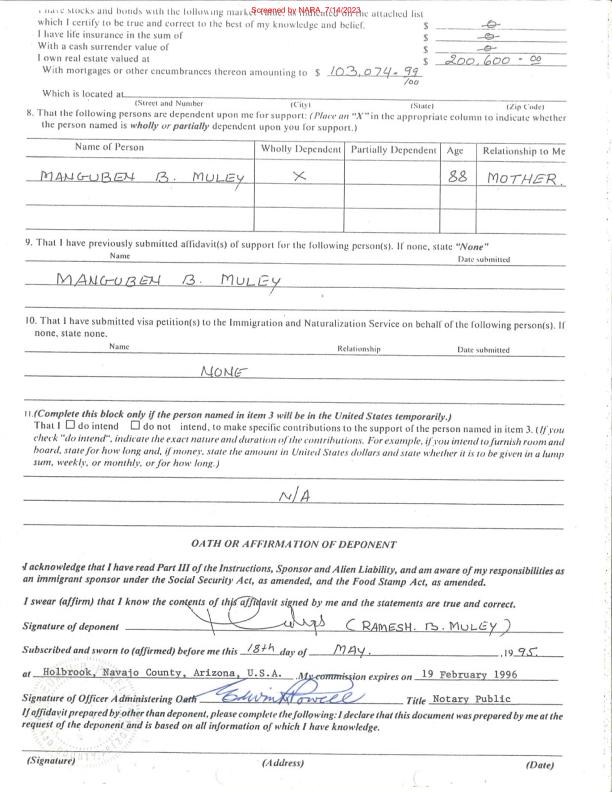 I have stocks and bonds with the following market value, as indicated on the attached list
Screened by NARA, 7/14/2023
which I certify to be true and correct to the best of my knowledge and belief. $ 0
I have life insurance in the sum of $ 0
With a cash surrender value of $ 0
I own real estate valued at $ 200,600-00
With mortgages or other encumbrances thereon amounting to $ 103,074.99/00
Which is located at
(Street and Number) (City) (State) (Zip Code)
8. That the following persons are dependent upon me for support: (Place an "X" in the appropriate column to indicate whether
the person named is wholly or partially dependent upon you for support.)
Name of Person Wholly Dependent Partially Dependent Age Relationship to Me
MANGUBEN B. MULEY X 88 MOTHER.
9. That I have previously submitted affidavit(s) of support for the following person(s). If none, state "None"
Name Date submitted
MANGUBEN B. MULEY
10. That I have submitted visa petition(s) to the Immigration and Naturalization Service on behalf of the following person(s). If
none, state none.
Name Relationship Date submitted
NONE
11.(Complete this block only if the person named in item 3 will be in the United States temporarily.)
That I ☐ do intend ☐ do not intend, to make specific contributions to the support of the person named in item 3. (If you
check "do intend", indicate the exact nature and duration of the contributions. For example, if you intend to furnish room and
board, state for how long and, if money, state the amount in United States dollars and state whether it is to be given in a lump
sum, weekly, or monthly, or for how long.)
N/A
OATH OR AFFIRMATION OF DEPONENT
I acknowledge that I have read Part III of the Instructions, Sponsor and Alien Liability, and am aware of my responsibilities as
an immigrant sponsor under the Social Security Act, as amended, and the Food Stamp Act, as amended.
I swear (affirm) that I know the contents of this affidavit signed by me and the statements are true and correct.
Signature of deponent (RAMESH. B. MULEY)
Subscribed and sworn to (affirmed) before me this 18th day of MAY. ,19 95.
at Holbrook, Navajo County, Arizona, U.S.A. .My commission expires on 19 February 1996
Signature of Officer Administering Oath Edwin Powell Title Notary Public
If affidavit prepared by other than deponent, please complete the following: I declare that this document was prepared by me at the
request of the deponent and is based on all information of which I have knowledge.
(Signature) (Address) (Date)